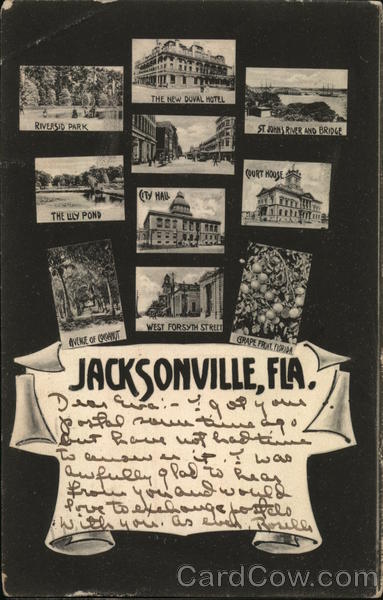 THE NEW DUVAL HOTEL
RIVERSID PARK
ST. JOHNS RIVER AND BRIDGE
THE LILY POND
CITY HALL
COURT HOUSE
AVENUE OF COCOANUT
WEST FORSYTH STREET
GRAPE FRUIT, FLORIDA
JACKSONVILLE, FLA.
Dear Eva:- I got your
postal some time ago
but have not had time
to answer it. I was
awfully glad to hear
from you and would
love to exchange postals
with you. As ever,
CardCow.com